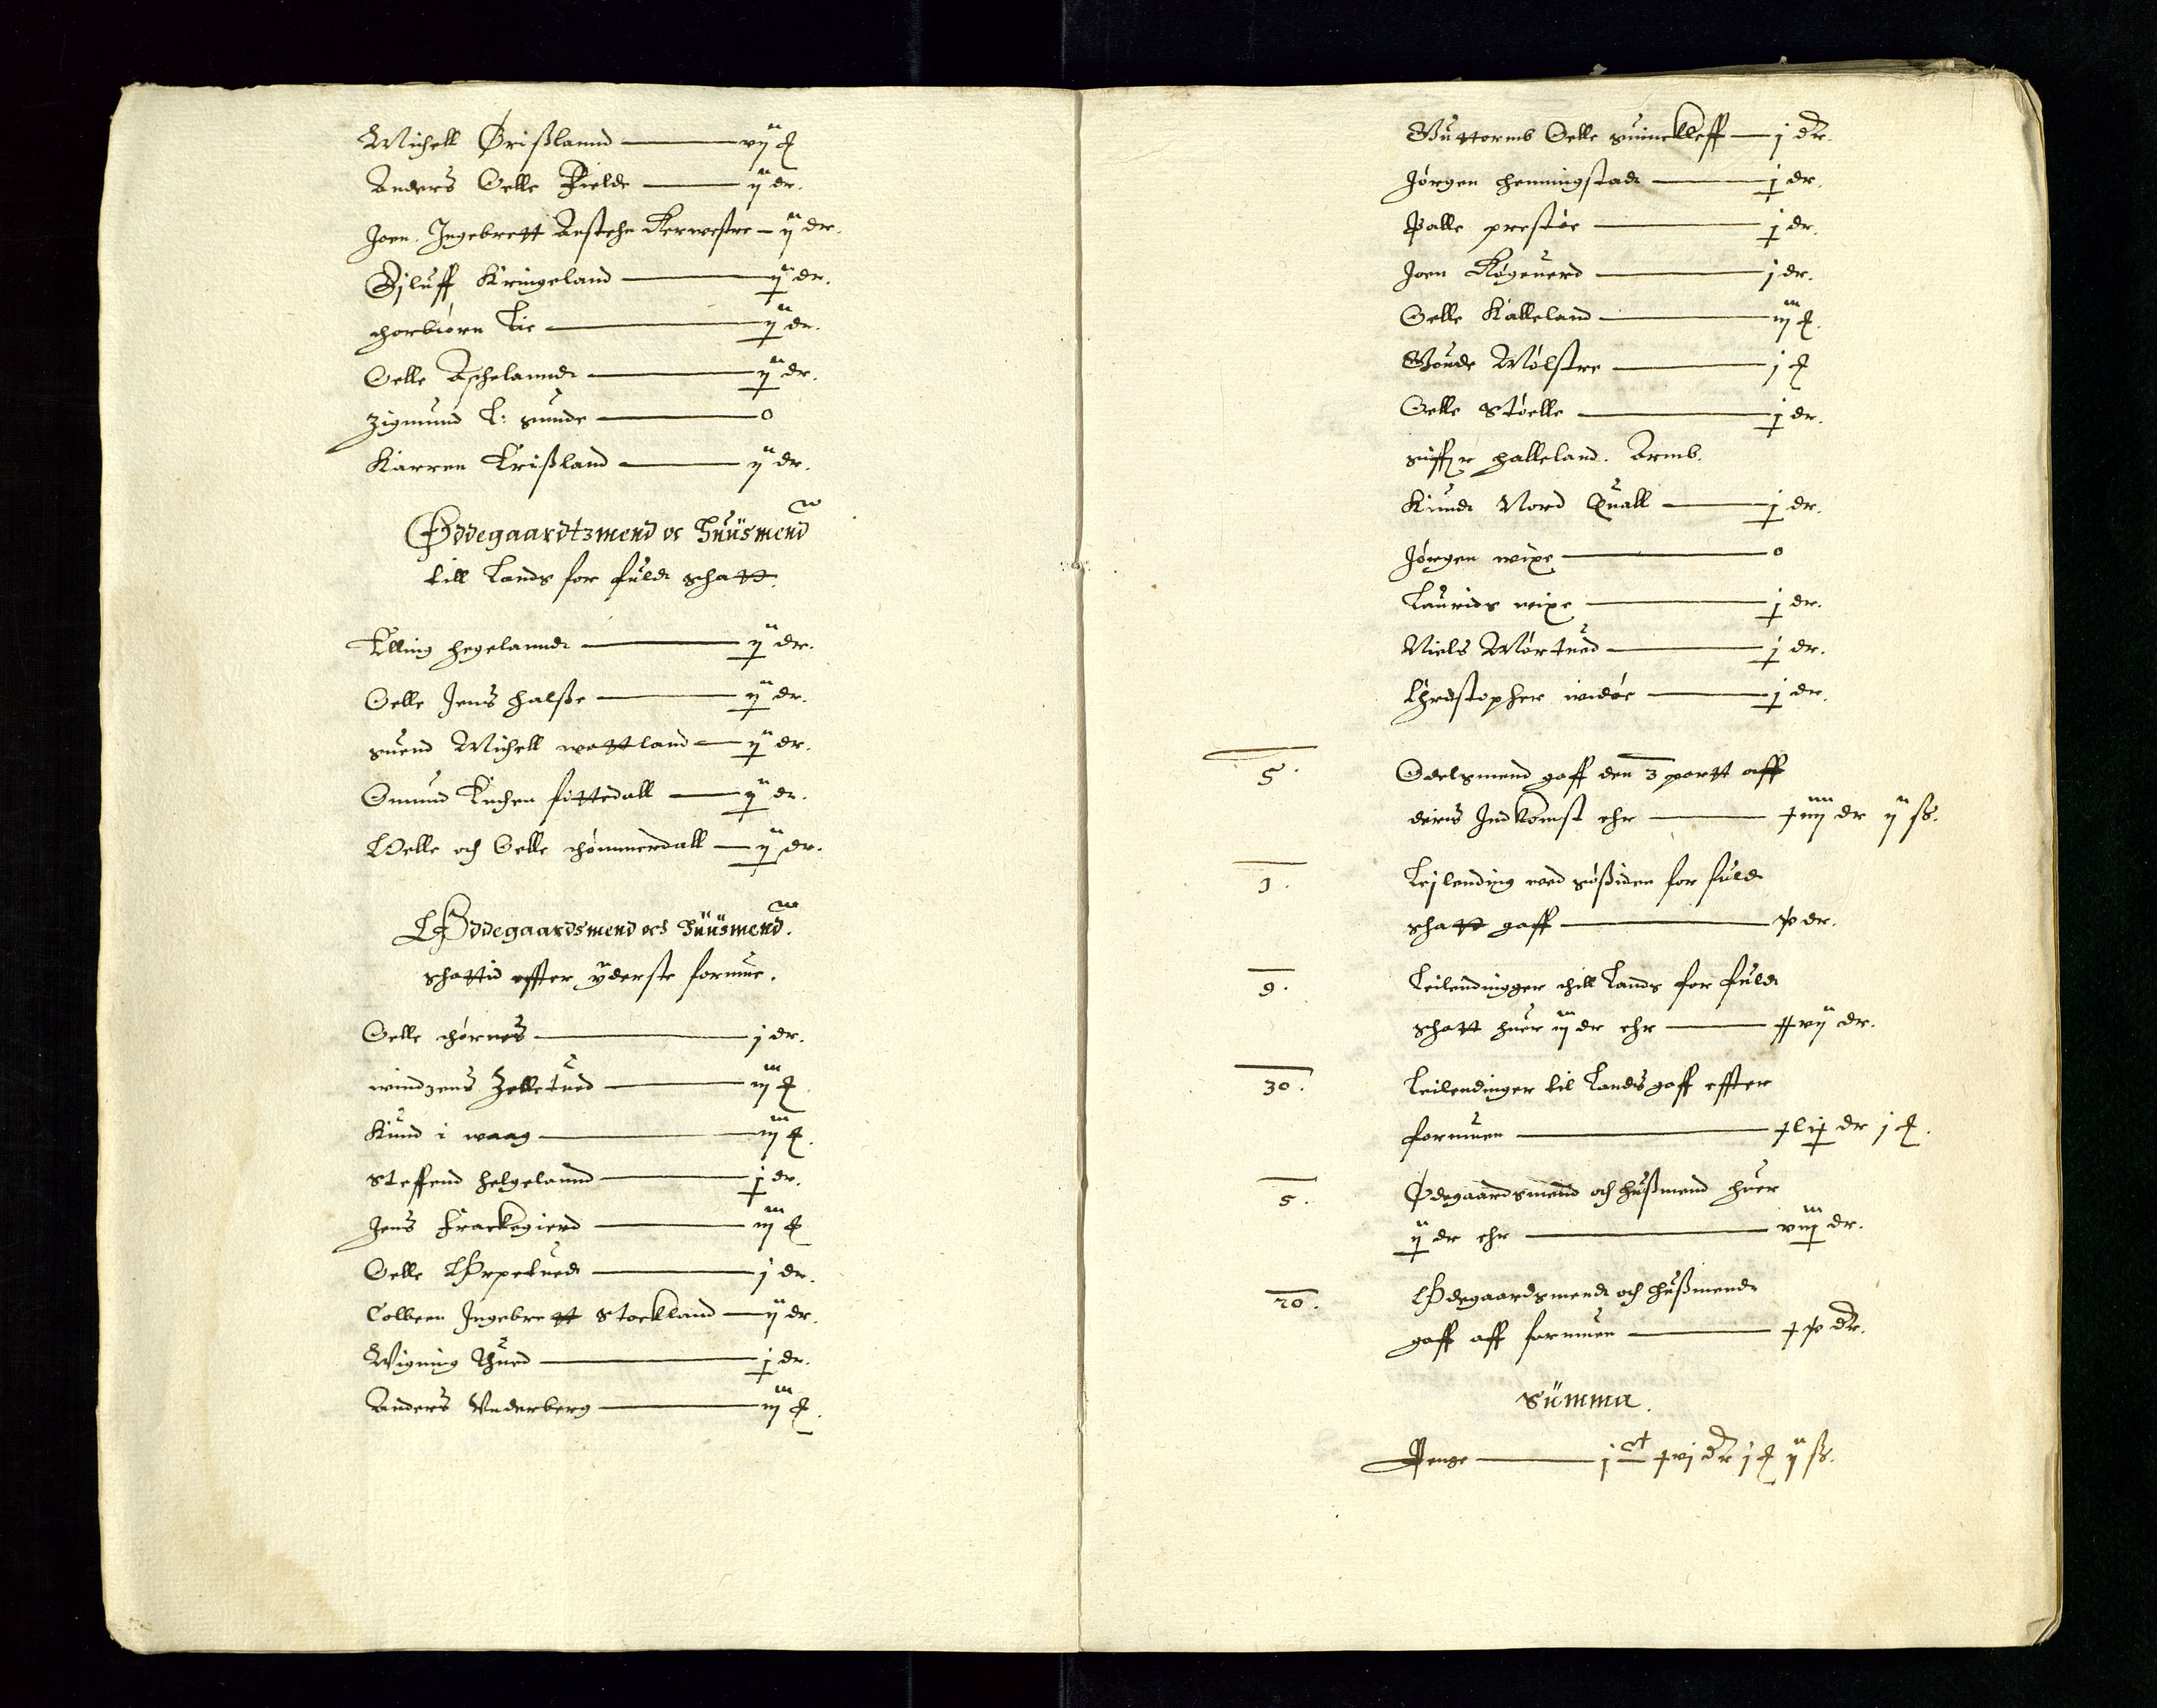 Michell Ørißlannd — vij
Anders Oelle Fielde — ij dr.
Joen. Ingebrett Aestehe Kerwestre — ij dr.
Ejluff Kringeland — ij dr.
Thorbiørn Lie — ij dr.
Oelle Aschelannd — ij dr.
Zigmund L: sunde — 0
Karren Krißland — ij dr.
Øddegaardtzmend oc Huüsmend
till Lands for fuld schatt.
Elling hegelannd — ij dr.
Oelle Jens halße — ij dr.
suend Michell wattland — ij dr.
Omund Knehen fittedall — ij dr.
Welle och Oelle Thömmerdall — ij dr.
Øddegaardsmend och Huüsmend.
schattid effter ÿderste formue.
Oelle Thörnes — j dr.
windzens Helletued — iij
Knud i waag — iij
Steffend helgelannd — j dr.
Jens Krackegierd — iij
Oelle Ørpetued — j dr.
Tolleen Ingebrett Stockland — ij dr.
Wigning Thued — j dr.
Anders Vnderberg — iij
Guttormb Oelle suineklleff — j dr.
Jørgen henningstad — j dr.
Palle prestøe — j dr.
Joen Røgeuerd — j dr.
Oelle Kalleland — iij
Gonde Mølstre — j
Oelle Støelle — j dr.
siffr halleland. Armb.
Knud Nord Quall — j dr.
Jørgen wixe — 0
Laurids wixe — j dr.
Niels Mørtued — j dr.
Chrestopher widøe — j dr.
5. Odelsmend gaff den 3 partt aff
deris Indkomst ehr — xiiij dr ij ß.
3. Lejlending ved søßiden for fuld
schatt gaff — x dr.
9. Leilendingger thill Lands for fuld
schatt huer iij dr ehr — xxvij dr.
30. Leilendinger til Lands gaff effter
formuen — xlij dr j
5. Ødegaardsmend och hußmend huer
ij dr ehr — viij dr.
20. Ødegaardsmend och hußmend
gaff aff formuen — xx dr.
Summa.
Penge — j ct xvj dr j ij ß.